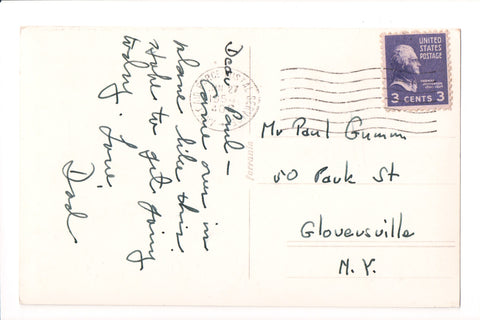 Dear Paul —
Came over in
plane like this.
Hope to get going
today. Love
Dad
UNITED
STATES
POSTAGE
3 CENTS 3
Mr Paul Gumm
50 Park St
Gloversville
N.Y.